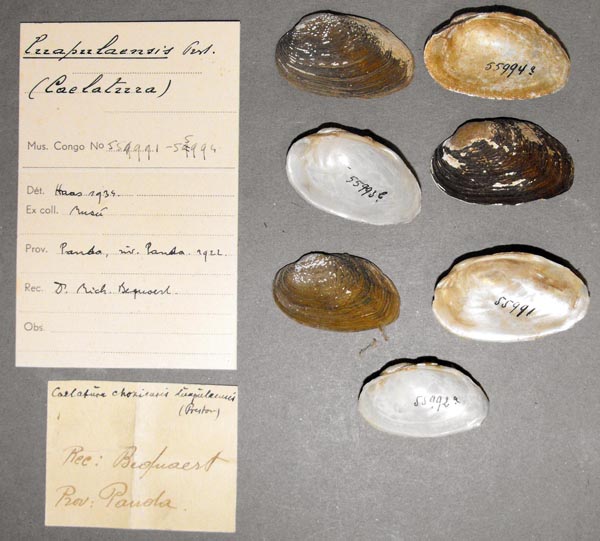 luapulaensis Prst.
(Caelatura)
Mus. Congo No 559991-559994
Dét. Haas 1934
Ex coll. Musée
Prov. Panda, riv. Panda 1922
Rec. Dr. Rich. Bequaert.
Obs.
Caelatura choziensis luapulaensis
(Preston)
Rec: Bequaert
Prov: Panda.
55994
55993
55991
55992